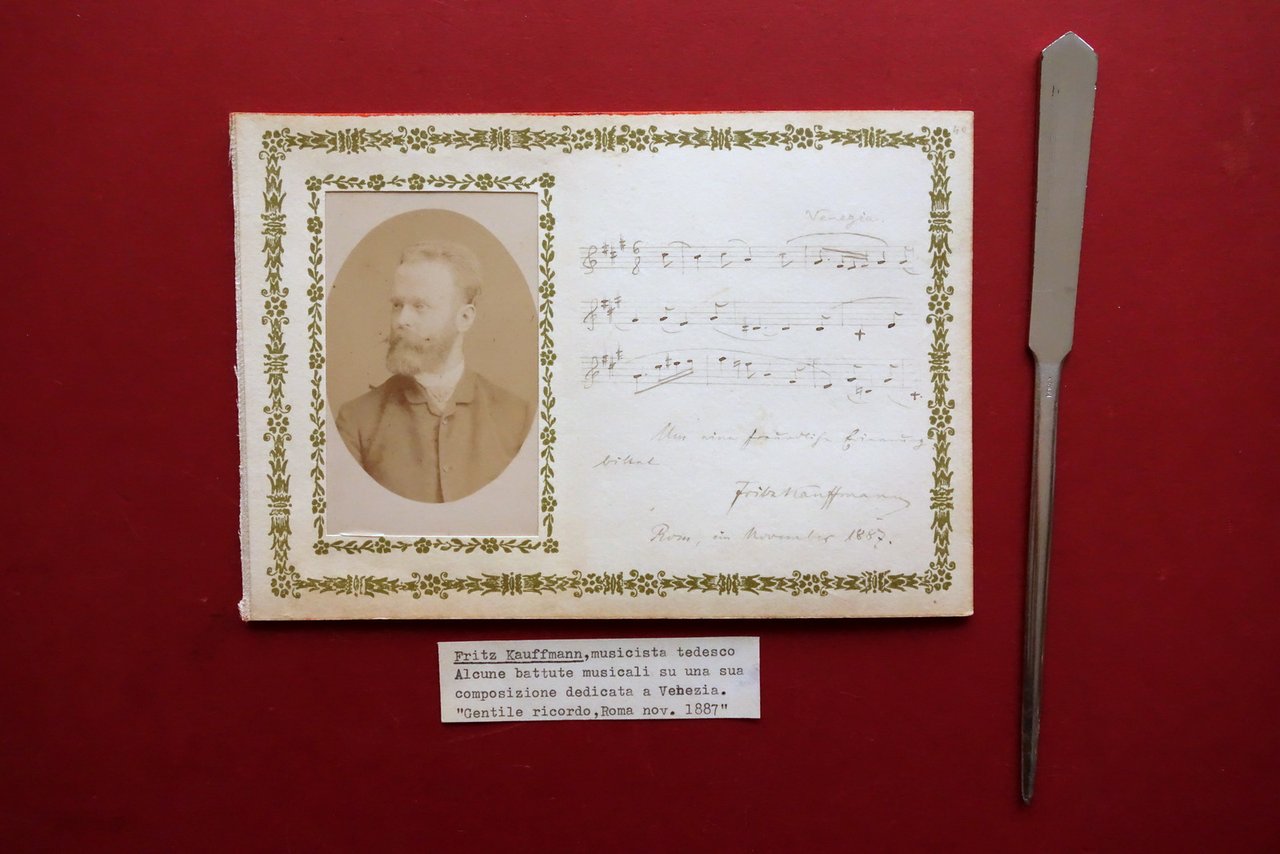 Venezia.
Um eine freundliche Erinnerung
bittet
Fritz Kauffmann
Rom, im November 1887.
Fritz Kauffmann,musicista tedesco
Alcune battute musicali su una sua
composizione dedicata a Venezia.
"Gentile ricordo,Roma nov. 1887"